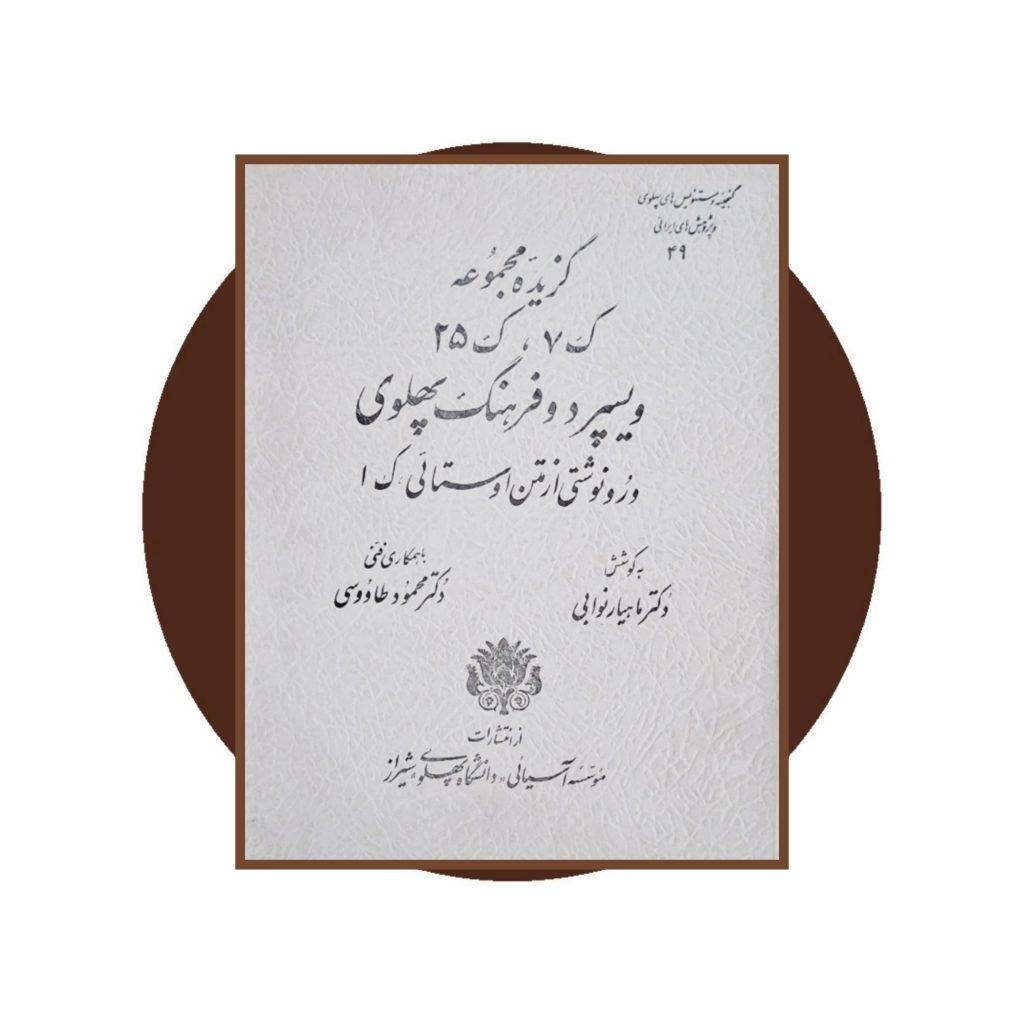 گنجینه دستنویس های پهلوی
و پژوهش های ایرانی
۴۹
گزیدهٔ مجموعه
ک ۷ ، ک ۲۵
ویسپرد و فرهنگ پهلوی
و رونوشتی از متن اوستائی ک ۱
به کوشش
دکتر ماهیار نوابی
با همکاری فنی
دکتر محمود طاووسی
از انتشارات
مؤسسه آسیائی دانشگاه پهلوی شیراز